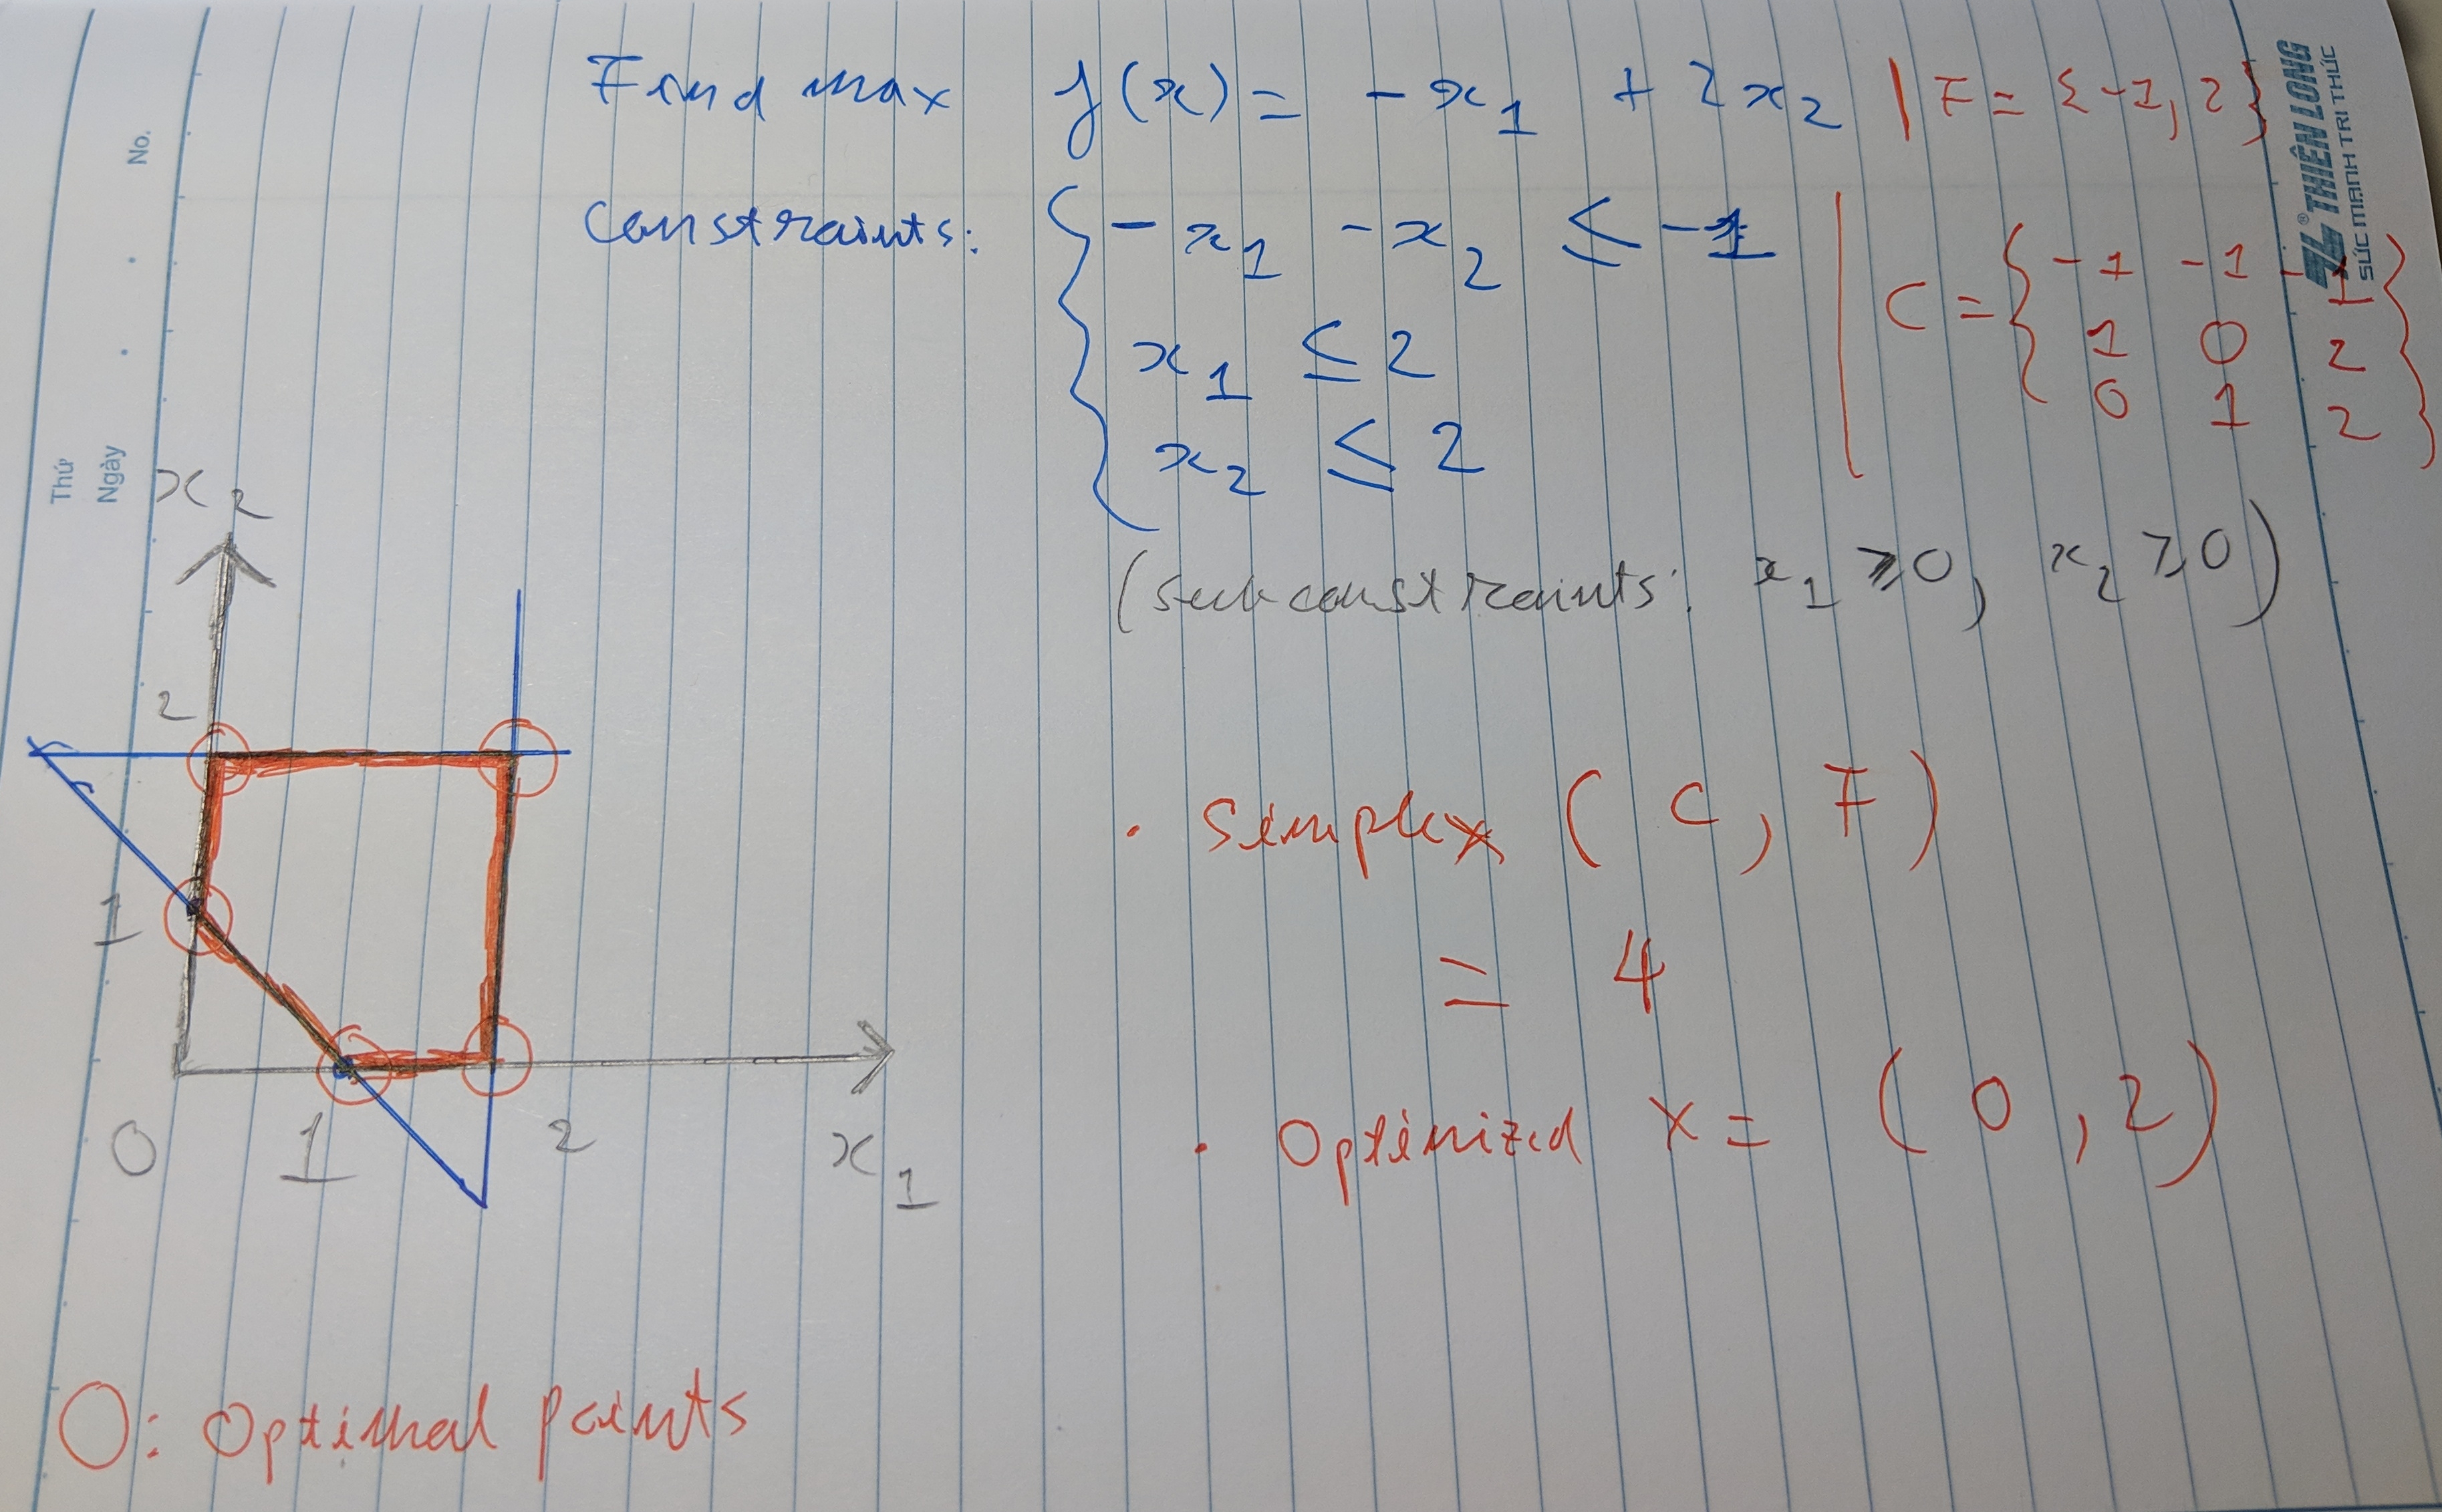 Find max f(x) = -x1 + 2x2 | F = {-1, 2}
constraints: { -x1 -x2 ≤ -1 | C = { -1 -1 -1 }
x1 ≤ 2 1 0 2
x2 ≤ 2 0 1 2
(subconstraints: x1 ≥ 0, x2 ≥ 0)
No.
Thứ
Ngày
®THIÊN LONG
SỨC MẠNH TRI THỨC
x2
2
1
0 1 2 x1
• Simplex (C, F)
= 4
• Optimized X = (0, 2)
O: Optimal points